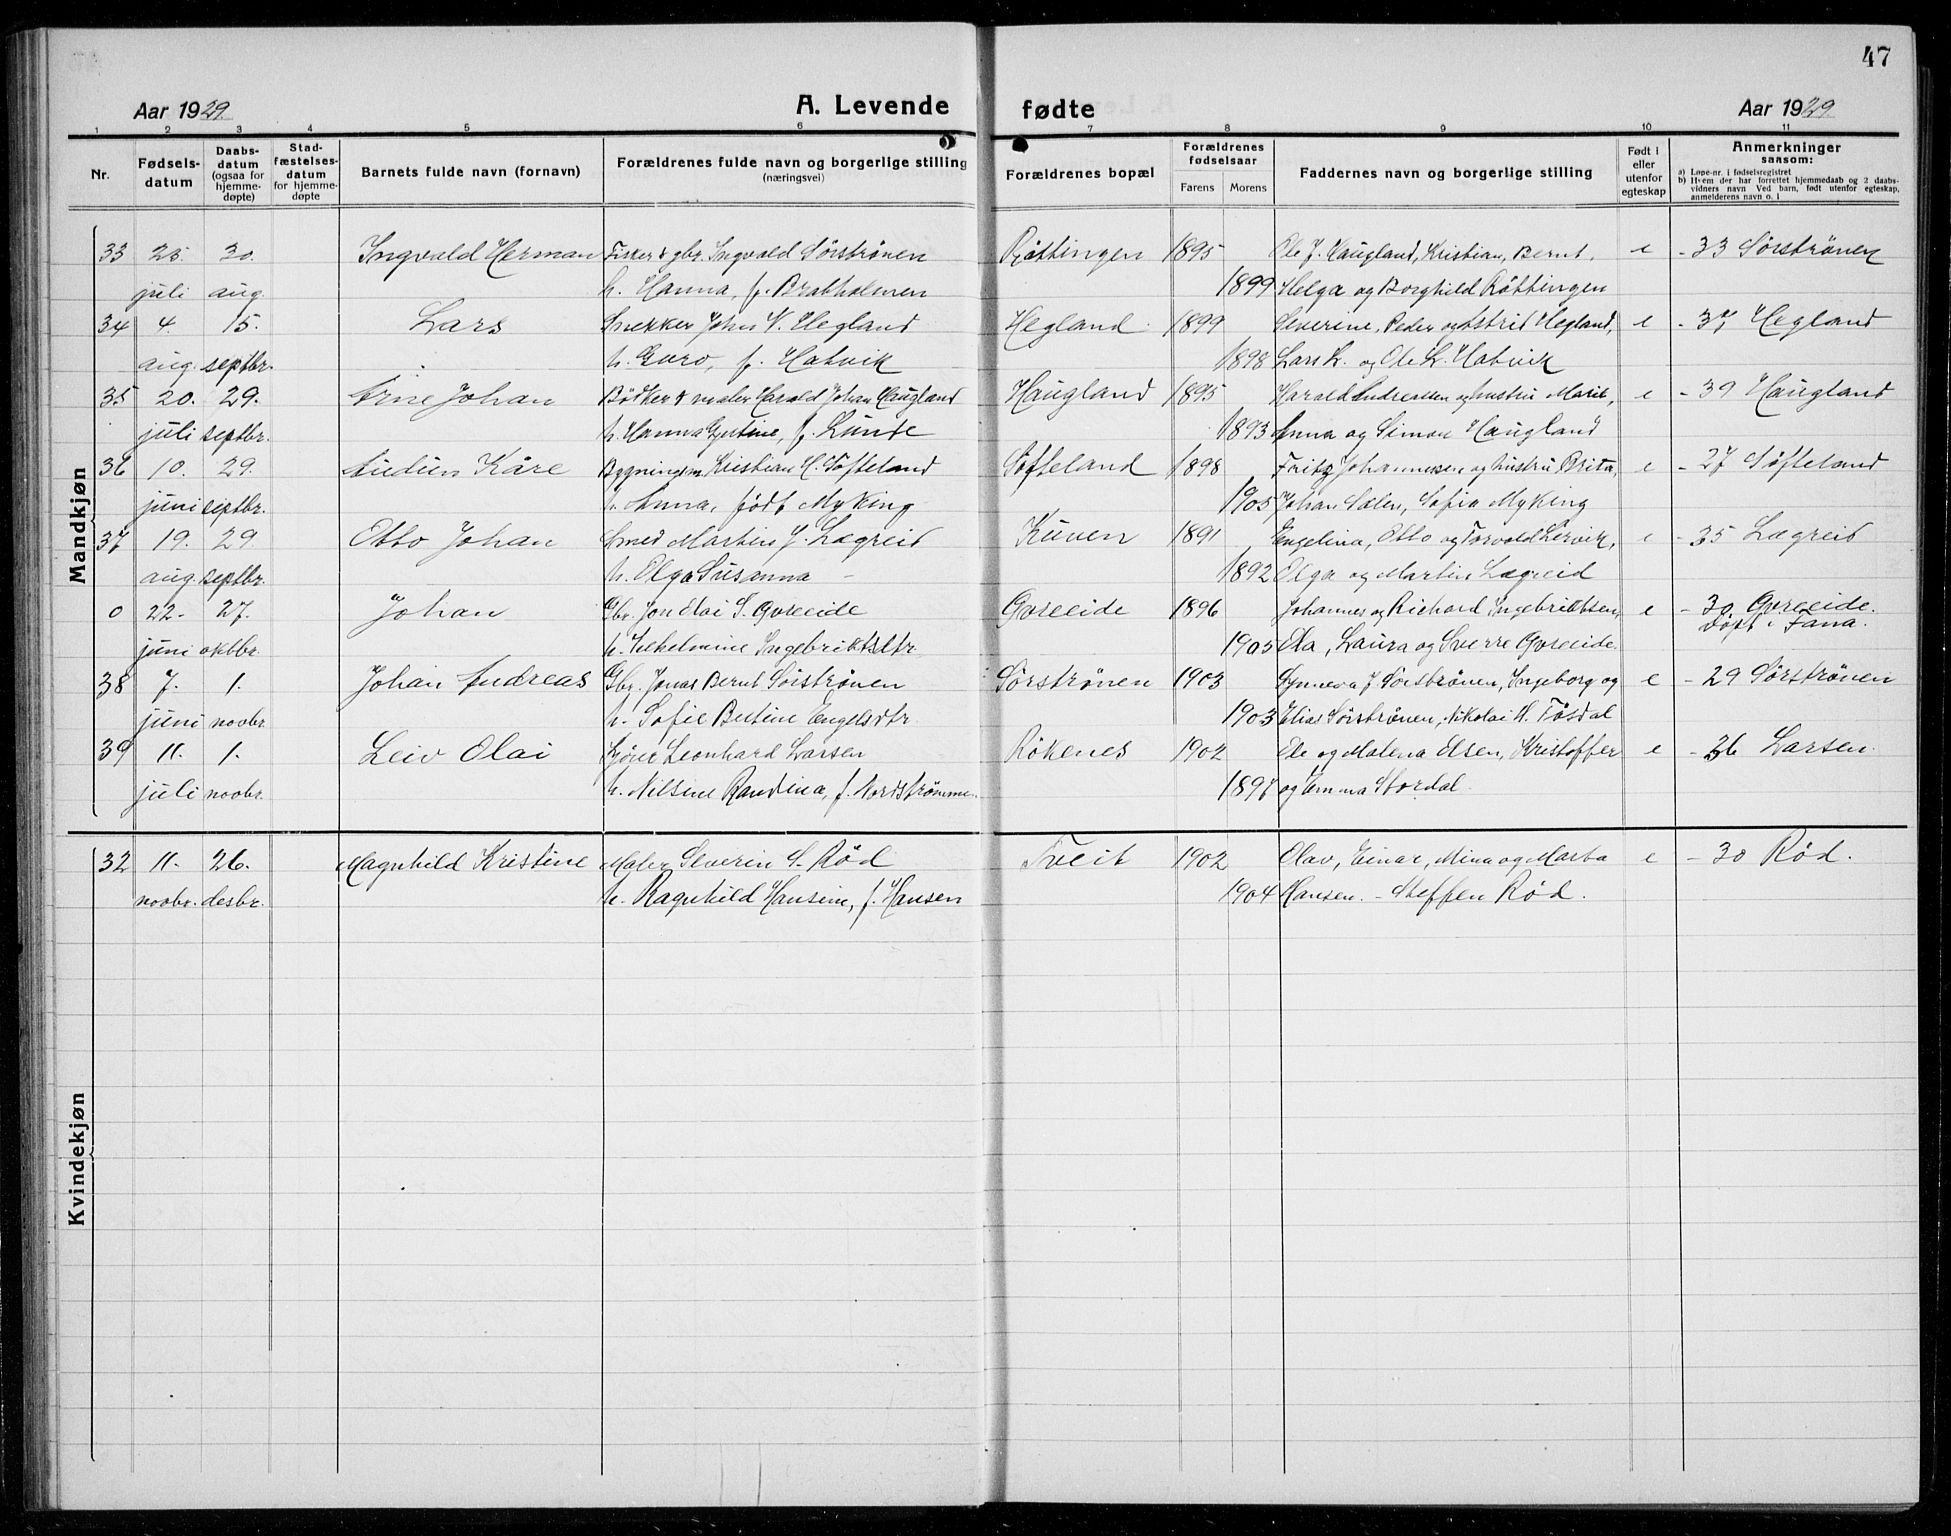 47
Aar 1929. A. Levende fødte Aar 1929.
1 2 3 4 5 6 7 8 9 10 11
Nr. Fødselsdatum Daabsdatum (ogsaa for hjemmedøpte) Stadfæstelsesdatum for hjemmedøpte Barnets fulde navn (fornavn) Forældrenes fulde navn og borgerlige stilling (næringsvei) Forældrenes bopæl Forældrenes fødselsaar Farens Morens Faddernes navn og borgerlige stilling Født i eller utenfor egteskap Anmerkninger saasom:
a) Løpe-nr. i fødselsregistret
b) Hvem der har forrettet hjemmedaab og 2 daabsvidners navn Ved barn, født utenfor egteskap, anmelderens navn o. l
Mandkjøn
33 25. 30. Ingvald Herman Fisker & gbr. Ingvald Sørstrønen Røttingen 1895 Ole J. Haugland, Kristian, Bernt, e - 33 Sørstrønen
juli aug. h. Hanna, f. Bratholmen 1899 Helga og Borghild Røttingen
34 4. 15. Lars Snekker John K. Hegland Hegland 1899 Severine, Peder og Astrid Hegland, e - 37 Hegland
aug. septbr. h. Guro, f. Hatvik 1898 Lars L. og Ole L. Hatvik
35 20. 29. Arne Johan Bødker & maler Harald Johan Haugland Haugland 1895 Harald Andreassen og hustru Marit, e - 39 Haugland
juli septbr. h. Hanna Gjertine, f. Lunde 1893 Anna og Simon Haugland
36 10. 29. Audun Kåre Bygningsm. Kristian H. Søfteland Søfteland 1898 Fritz Johannessen og hustru Brita, e - 27 Søfteland
juni septbr. h. Anna, født Myking 1905 Johan Sælen, Sofia Myking
37 19. 29. Otto Johan Smed Martin J. Lægreid Kuven 1891 Engelina, Otto og Torvald Lervik, e - 35 Lægreid
aug. septbr. h. Olga Susanna - 1892 Olga og Martin Lægreid
0 22. 27. Johan Gbr. Jon Olai S. Gåseeide Gåseeide 1896 Johannes og Richard Ingebriktsen, e - 30 Gåseeide.
døpt i Fana.
juni oktbr. h. Vilhelmine Ingebriktsdtr. 1905 Ola, Laura og Sverre Gåseeide.
38 7. 1. Johan Andreas Gbr. Jonas Bernt Sørstrønen Sørstrønen 1903 Synneva J. Sørstrønen, Ingeborg og e - 29 Sørstrønen
juni novbr. h. Sofie Bertine Engelsdtr. 1903 Elias Sørstrønen, Nikolai H. Tøsdal
39 11. 1. Leiv Olai Gjører Leonhard Larsen Røkenes 1902 Ole og Malena Olsen, Kristoffer e - 36 Larsen.
juli novbr. h. Nilsine Randina, f. Nordstrømme. 1897 og Emma Stordal.
Kvindekjøn
32 11. 26. Magnhild Kristine Maler Severin S. Rød Tveit 1902 Olav, Einar, Mina og Marta e - 30 Rød.
novbr. desbr. h. Ragnhild Hansine, f. Hansen 1904 Hansen. - Steffen Rød.